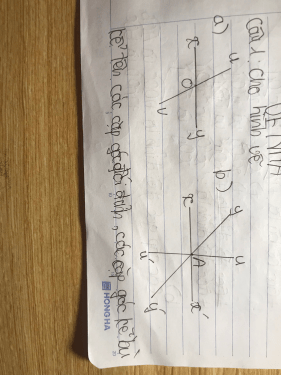 ĐỀ
Câu 1: Cho hình vẽ
a)
x
u
O
v
y
b)
x
y
A
u
u'
y'
x'
kể tên các cặp góc đối đỉnh, các cặp góc kề bù
HONGHA